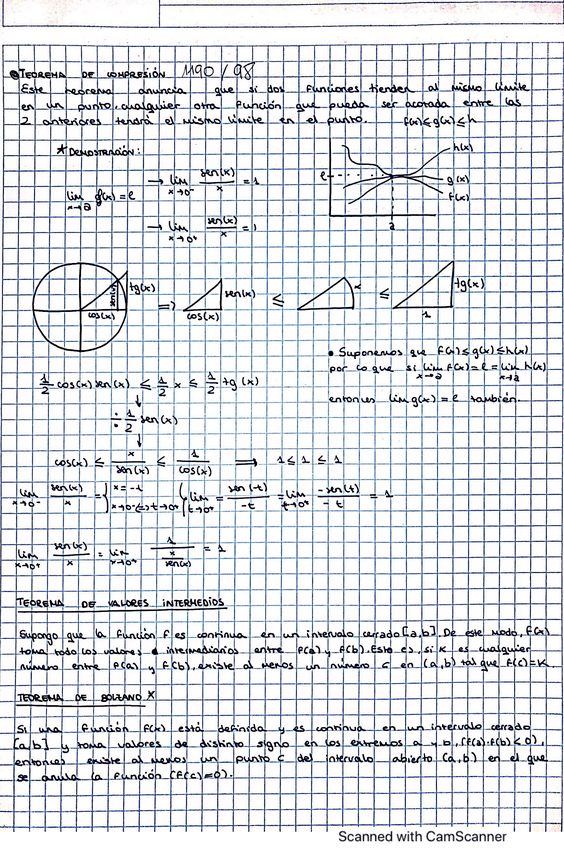 TEOREMA DE COMPRESIÓN 1190/98
Este teorema anuncia que si dos funciones tienden al mismo límite
en un punto, cualquier otra función que pueda ser acotada entre las
2 anteriores tendrá el mismo límite en el punto. f(x)≤g(x)≤h
* DEMOSTRACIÓN:
lim x→a g(x) = l
→ lim x→0⁻ sen(x)/x = 1
→ lim x→0⁺ sen(x)/x = 1
h(x)
l
g(x)
f(x)
a
sen(x) tg(x)
cos(x)
⇒ sen(x) cos(x) ≤ x ≤ tg(x) 1
• Suponemos que f(x)≤g(x)≤h(x)
por lo que si lim x→a f(x) = l = lim x→a h(x)
entonces lim g(x) = l también.
1/2 cos(x) sen(x) ≤ 1/2 x ≤ 1/2 tg(x)
↓
÷ 1/2 sen(x)
↓
cos(x) ≤ x/sen(x) ≤ 1/cos(x) ⇒ 1 ≤ 1 ≤ 1
lim x→0⁻ sen(x)/x = { x=-t x→0⁻⇔t→0⁺ { lim t→0⁺ = sen(-t)/-t = lim t→0⁺ -sen(t)/-t = 1
lim x→0⁺ sen(x)/x = lim x→0⁺ 1/(x/sen(x)) = 1
TEOREMA DE VALORES INTERMEDIOS
Supongo que la función f es continua en un intervalo cerrado [a,b]. De este modo, f(x)
toma todo los valores intermediarios entre f(a) y f(b). Esto es, si K es cualquier
número entre f(a) y f(b), existe al menos un número c en (a,b) tal que f(c)=K.
TEOREMA DE BOLZANO X
Si una función f(x) está definida y es continua en un intervalo cerrado
[a,b] y toma valores de distinto signo en los extremos a y b, (f(a)·f(b)<0),
entonces existe al menos un punto c del intervalo abierto (a,b) en el que
se anula la función (f(c)=0).
Scanned with CamScanner